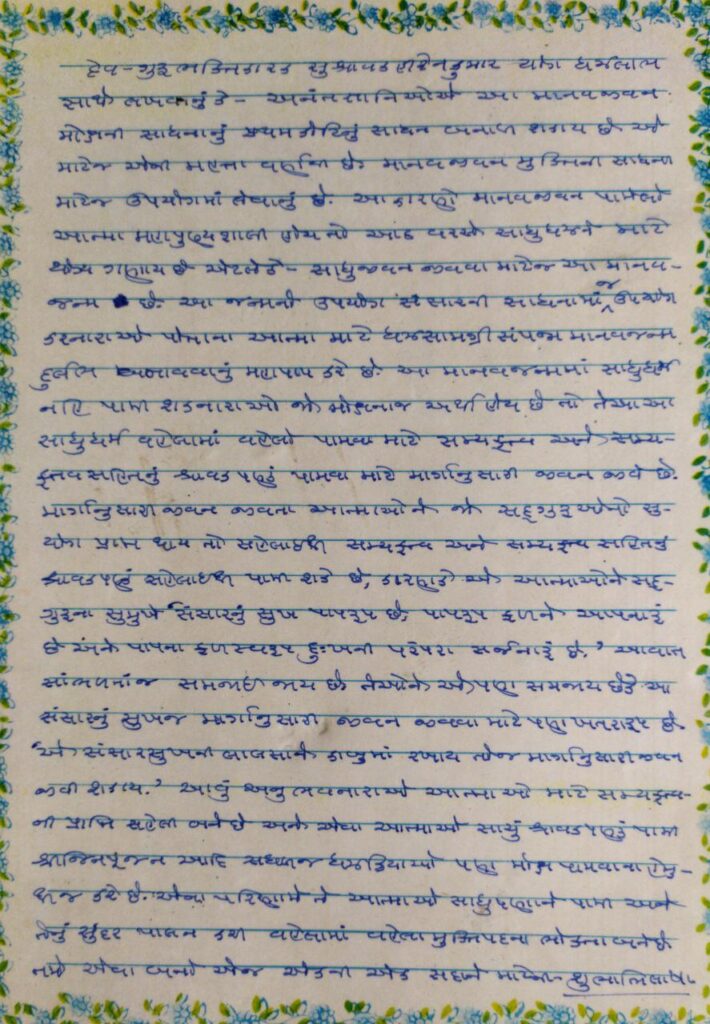 દેવ-ગુરુભક્તિકારક સુશ્રાવક હિતેનકુમાર યોગ્ય ધર્મલાભ
સાથે લખવાનું કે - અનંતજ્ઞાનિઓએ આ માનવજીવન
મોક્ષની સાધનાનું સાધન બનાવી શકાય છે એ
માટેજ એની મહત્તા વર્ણવી છે. માનવજીવન મુક્તિની સાધના
માટેજ ઉપયોગમાં લેવાનું છે. આ કારણે માનવજીવન પામેલો
આત્મા મહાપુણ્યશાલી હોય તો આઠ વરસે સાધુધર્મને માટે
યોગ્ય ગણાય છે એટલેકે - સાધુજીવન જીવવા માટેજ આ માનવ-
જન્મ છે. આ જન્મનો ઉપયોગ સંસારની સાધનામાં જ ઉપયોગ
કરનારાઓ પોતાના આત્મા માટે ધર્મસામગ્રી સંપન્ન માનવજન્મ
દુર્લભ બનાવવાનું મહાપાપ કરે છે. આ માનવજન્મમાં સાધુધર્મ
નહિ પામી શકનારાઓ જો મોક્ષનાજ અર્થી હોય છે તો તેઓ આ
સાધુધર્મ વહેલામાં વહેલો પામવા માટે સમ્યક્ત્વ અને સમ્ય-
ક્ત્વસહિતનું શ્રાવકપણું પામવા માટે માર્ગાનુસારી જીવન જીવે છે.
માર્ગાનુસારી જીવન જીવતા આત્માઓને જો સદ્ગુરુઓનો સુ-
યોગ પ્રાપ્ત થાય તો સહેલાઈથી સમ્યક્ત્વ અને સમ્યક્ત્વ સહિતનું
શ્રાવકપણું સહેલાઈથી પામી શકે છે, કારણકે એ આત્માઓને સદ્-
ગુરુના સુમુખે 'સંસારનું સુખ પાપરૂપ છે, પાપરૂપ ફળને આપનારું
છે અને પાપના ફળસ્વરૂપ દુઃખની પરંપરા સર્જનારું છે.' આ વાત
સાંભળતાંજ સમજાઈ જાય છે તેઓને એ પણ સમજાય છે કે આ
સંસારનું સુખજ માર્ગાનુસારી જીવન જીવવા માટે પણ ખતરારૂપ છે
'એ સંસારસુખની લાલસાને કાબુમાં રખાય તોજ માર્ગાનુસારી જીવન
જીવી શકાય.' આવું અનુભવનારાઓ આત્માઓ માટે સમ્યક્ત્વ-
ની પ્રાપ્તિ સહેલી બને છે અને એવા આત્માઓ સાચું શ્રાવકપણું પામી
શ્રીજિનપૂજન આદિ સઘળીજ ધર્મક્રિયાઓ પણ મોક્ષ પામવાના હેતુ-
થીજ કરે છે. એના પરિણામે તે આત્માઓ સાધુપણાને પામી અને
તેનું સુંદર પાલન કરી વહેલામાં વહેલા મુક્તિપદના ભોક્તા બને છે
તમે એવા બનો એજ એકની એક સદાને માટેની- શુભાભિલાષા.